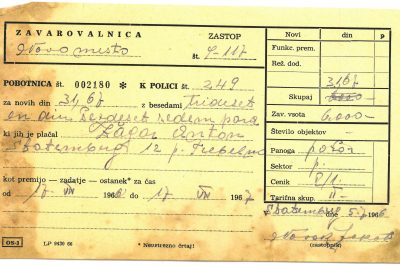 ZAVAROVALNICA
Novo mesto
ZASTOP
št. 9-117
POBOTNICA št. 002180 * K POLICI št. 249
za novih din 31,67 z besedami Trideset
en din šezdeset sedem para
ki jih je plačal Žagar Anton
Štatemberg 12 p. Trebelno
kot premijo — zadatje — ostanek* za čas
od 17 VII 1966 do 17 VII 1967
OS-3 LP 9630 66 * Neustrezno črtaj!
Novi din p
Funkc. prem.
Rež. dod.
31,67
Skupaj
Zav. vsota 6.000-
Število objektov -
Panoga požar
Sektor p.
Cenik
Tarifna skup. II
Štatemberg dne 5/7 1966
Novak
(zastopnik)